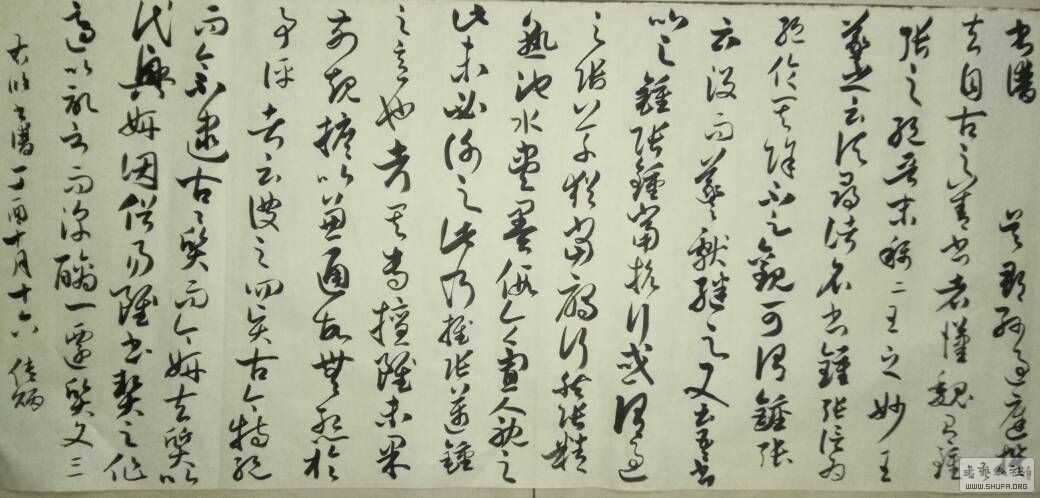 書譜 吴郡孫過庭撰
夫自古之善書者漢魏有鍾
張之絶晉末稱二王之妙王
羲之云頃尋諸名書鍾張信為
絶倫其餘不足觀可謂鍾張
云没而羲獻繼之又云吾書
比之鍾張鍾當抗行或謂過
之張草猶當鴈行然張精
熟池水盡墨假令寡人耽之
此未必謝之此乃推張邁鍾
之意也考其專擅雖未果
前規摭以兼通故無慙於
即事評者云彼之四賢古今特絶
而今不逮古〻質而今妍夫質以
代興妍因俗易雖書契之作
適以記言而淳醨一遷質文三
右臨書譜丁酉十月十六
WWW.SHUFA.ORG